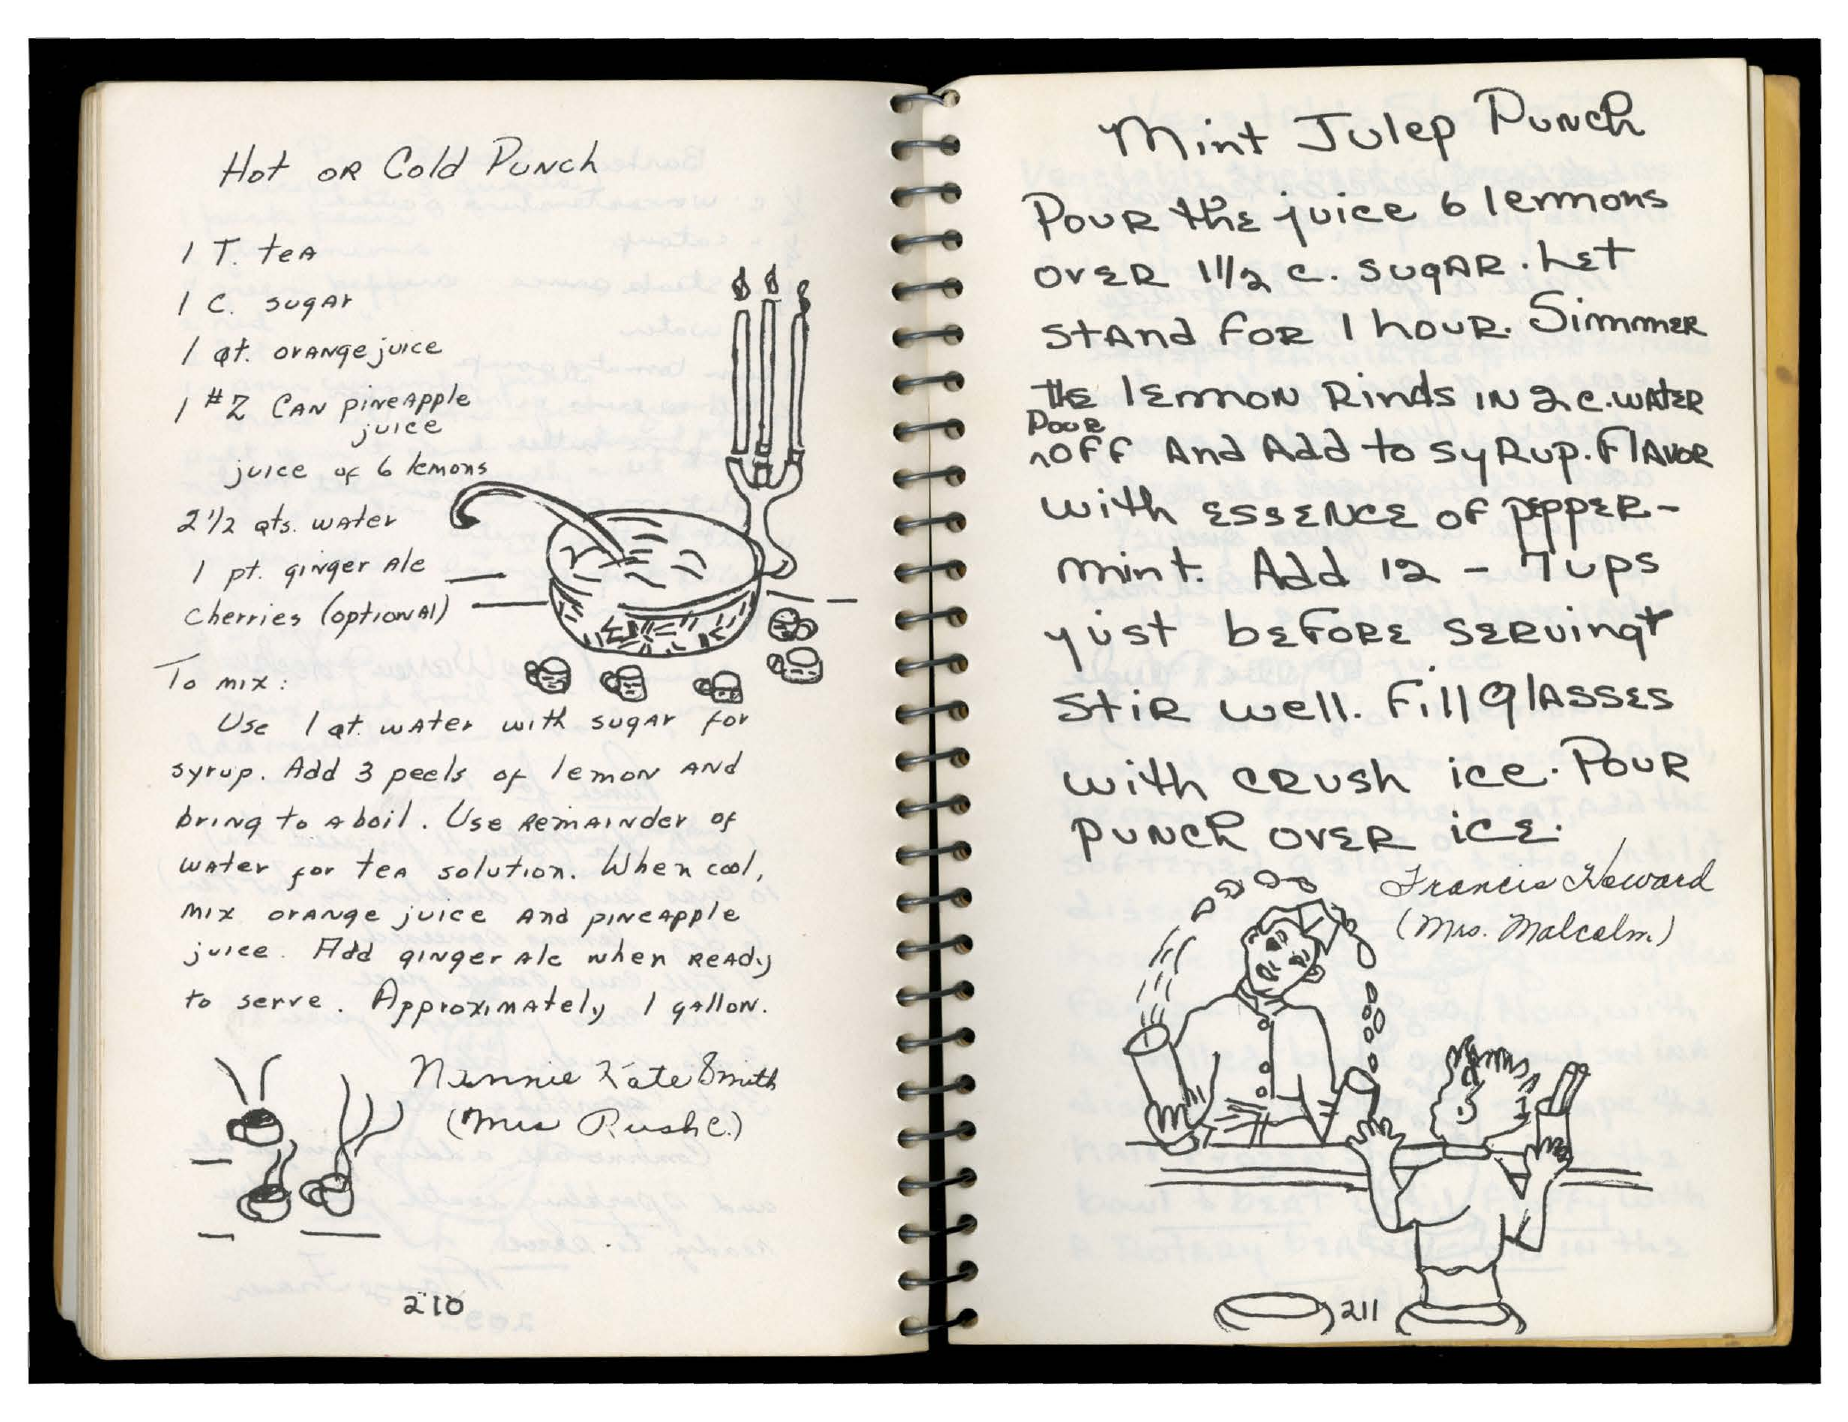 Hot or Cold Punch
1 T. tea
1 c. sugar
1 qt. orange juice
1 #2 can pineapple
juice
juice of 6 lemons
2 1/2 qts. water
1 pt. ginger ale
cherries (optional)
To mix:
Use 1 qt. water with sugar for
syrup. Add 3 peels of lemon and
bring to a boil. Use remainder of
water for tea solution. When cool,
mix orange juice and pineapple
juice. Add ginger ale when ready
to serve. Approximately 1 gallon.
Kate Smith
(Mrs Rush C.)
210
Mint Julep Punch
Pour the juice 6 lemons
over 1 1/2 c. sugar. Let
stand for 1 hour. Simmer
the lemon rinds in 2 c. water
Pour
^off and add to syrup. Flavor
with essence of pepper-
mint. Add 12 - 7ups
just before serving
stir well. Fill glasses
with crush ice. Pour
punch over ice.
Francis Howard
(Mrs. Malcolm)
211